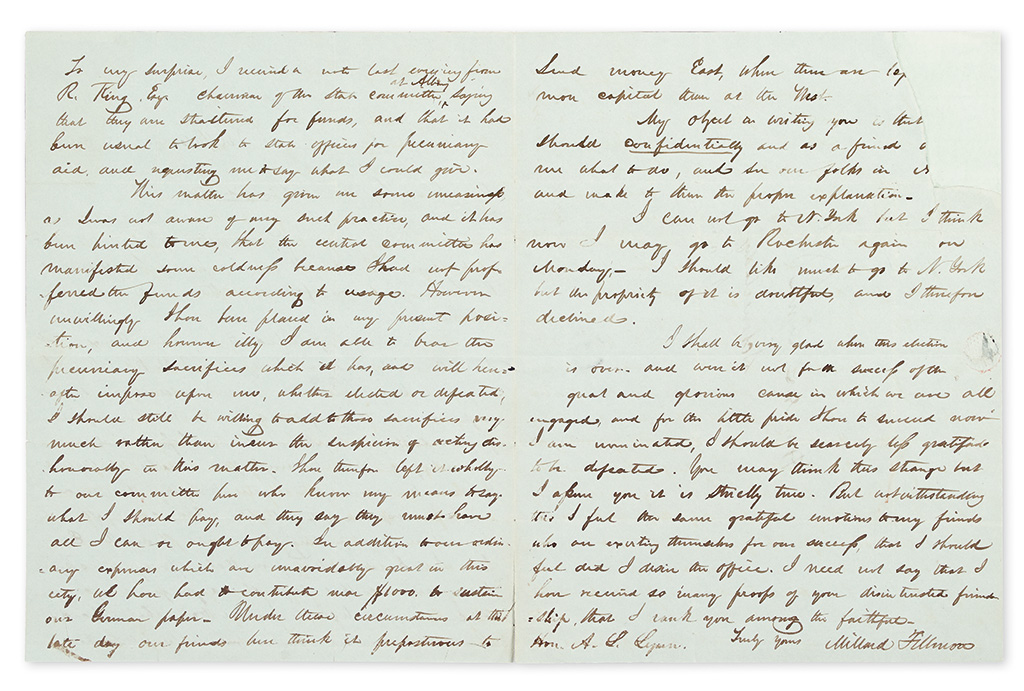 To my surprise, I received a note last evening from
R. King Esqr chairman of the State committee, at Albany saying
that they are strattened for funds, and that it had
been usual to look to state officers for pecuniary
aid, and requesting me to say what I could give.
This matter has given me some uneasiness
as I was not aware of any such practice, and it has
been hinted to me, that the central committee has
manifested some coldness because I had not prof-
-ferred the funds according to usage. However
unwillingly I have been placed in my present posi-
-tion, and however illy I am able to bear the
pecuniary sacrifices which it has, and will here-
-after impose upon me, whether elected or defeated,
I should still be willing to add to those sacrifices very
much rather than incur the suspicion of acting dis-
-honorably in this matter. I have therefore left it wholly
to our committee here who know my means to say
what I should pay, and they say they must have
all I can or ought to pay. In addition to our ordin-
-ary expenses which are unavoidably great in this
city, we have had to contribute near $1000. to sustain
our German paper. Under these circumstances at this
late day our friends here think it preposterous to
Send money East, when there are
more capital than at the West.
My object in writing you is that
should confidentially and as a friend
me what to do, and see our folks in
and make to them the proper explanation.
I can not go to N. York but I think
now I may go to Rochester again on
Monday,- I should like much to go to N. York
but the propriety of it is doubtful, and I therefore
declined.
I shall be very glad when this election
is over- and were it not for the success of the
great and glorious cause in which we are all
engaged, and for the little pride I have to succeed now
I am nominated, I should be scarcely less gratified
to be defeated. You may think this strange but
I assure you it is strictly true. But notwithstanding
this I feel the same grateful emotions to my friends
who are exerting themselves for our success, that I should
feel did I desire the office. I need not say that I
have received so many proofs of your disinterested friend-
-ship, that I rank you among the faithful-
Truly yours Millard Fillmore
Hon. A. L.